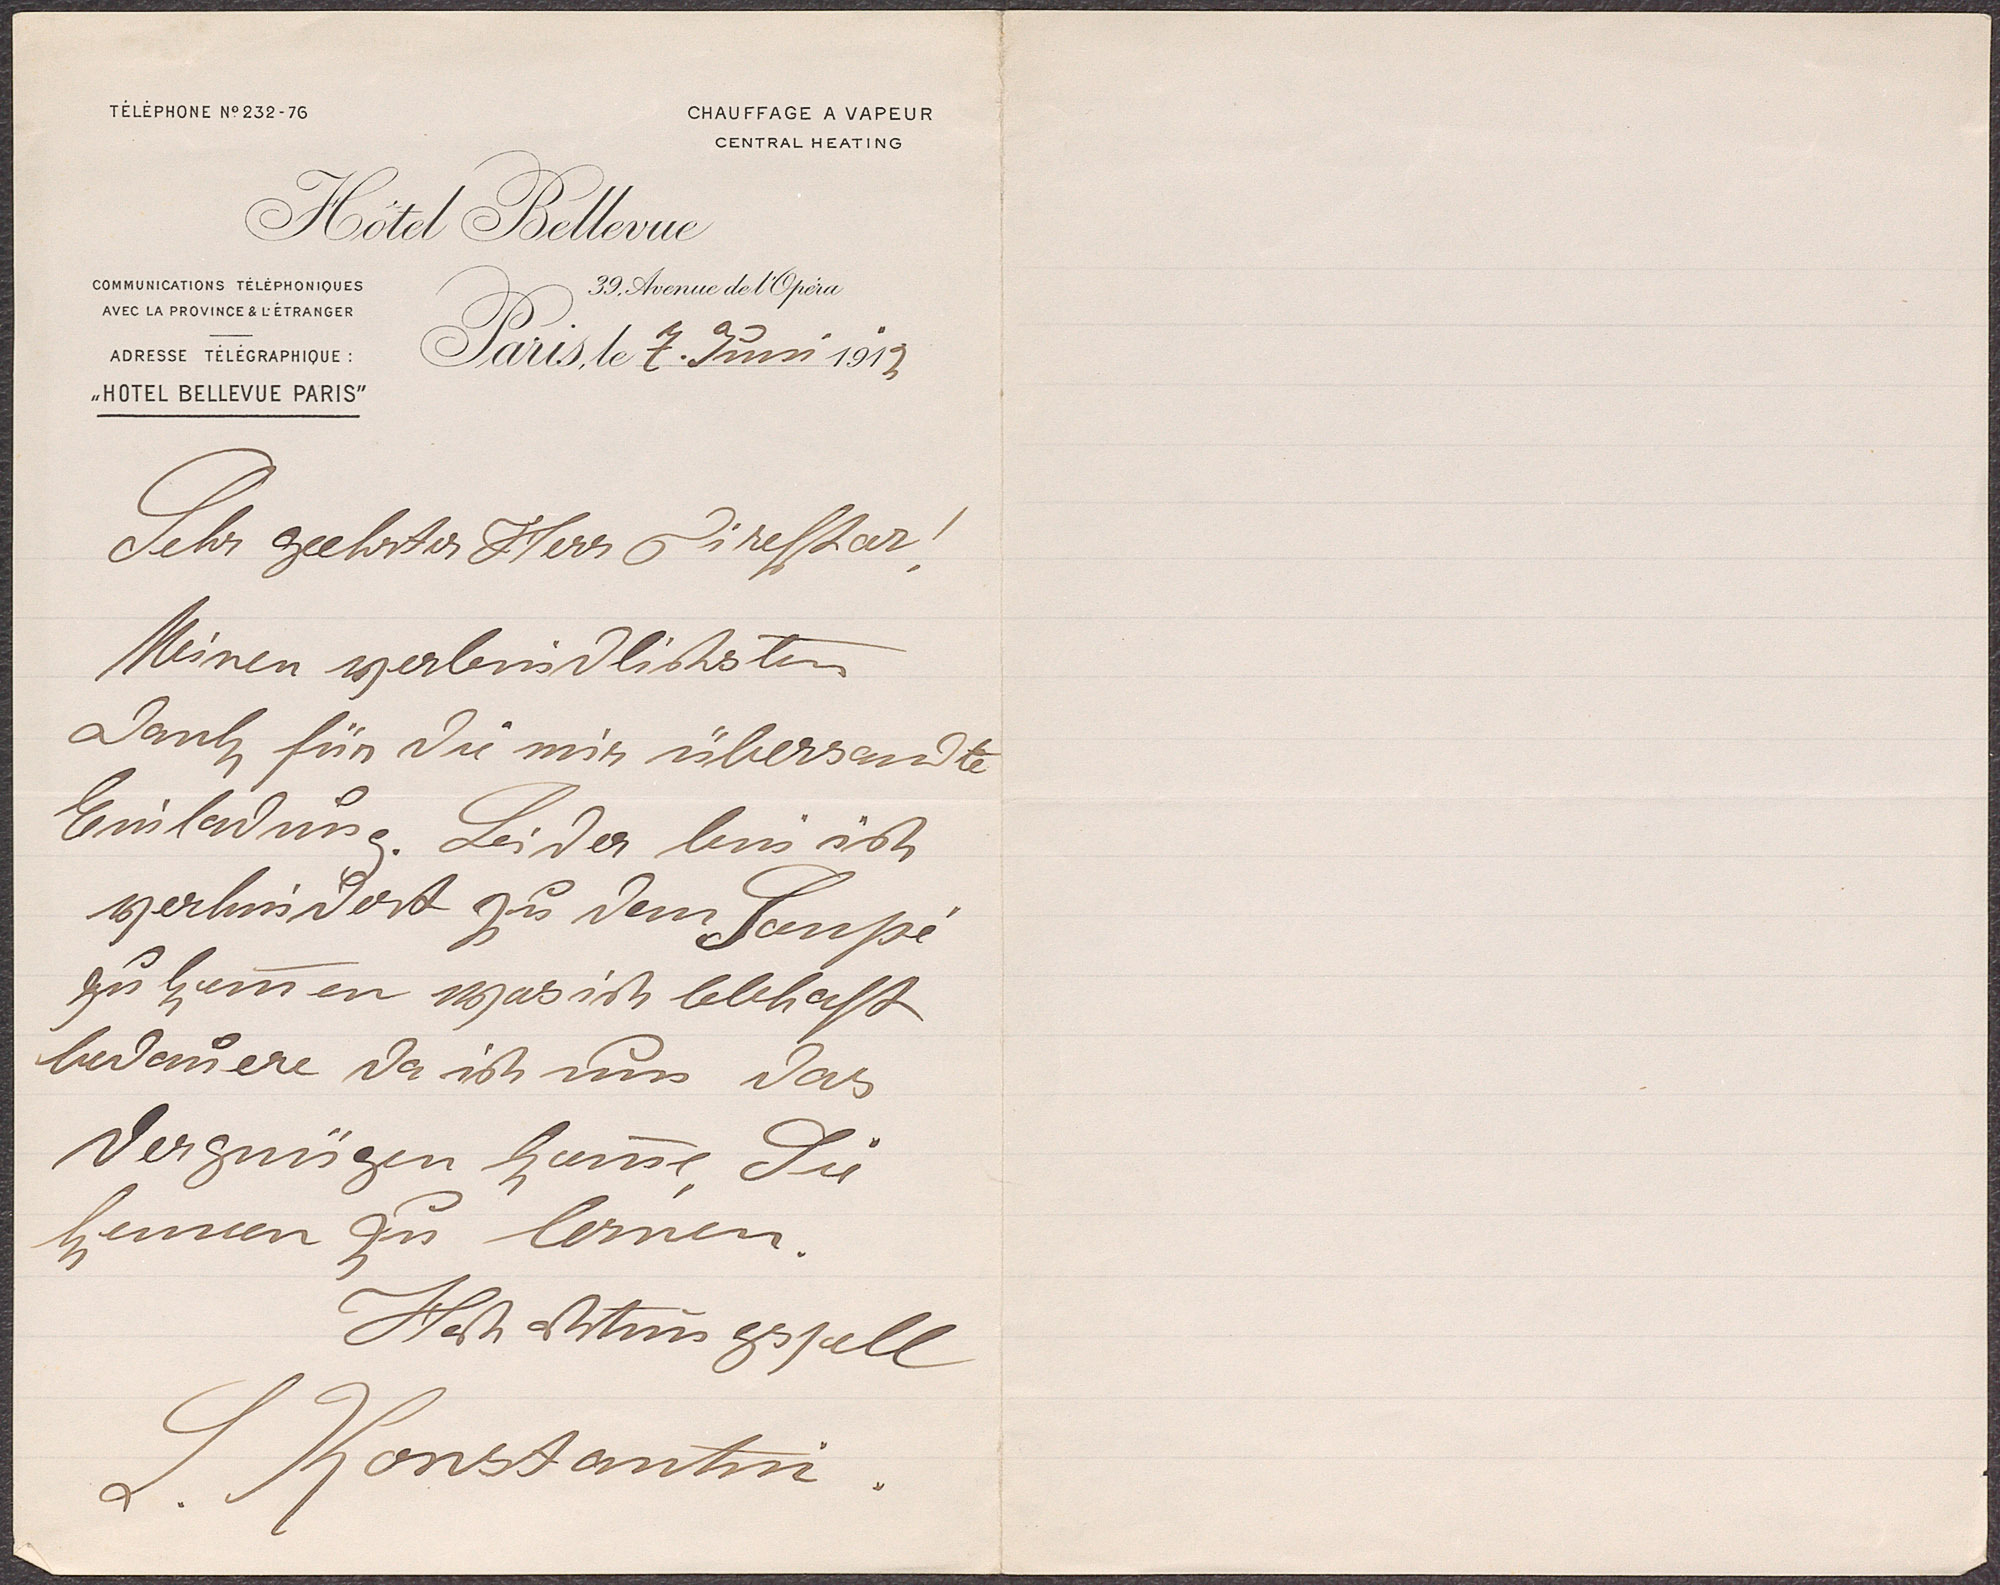 TÉLÉPHONE Nº 232-76
CHAUFFAGE A VAPEUR
CENTRAL HEATING
Hôtel Bellevue
COMMUNICATIONS TÉLÉPHONIQUES
AVEC LA PROVINCE & L'ÉTRANGER
ADRESSE TÉLÉGRAPHIQUE :
„HOTEL BELLEVUE PARIS"
39, Avenue de l'Opéra
Paris, le 7. Juni 1912
Sehr geehrter Herr Direktor!
Meinen verbindlichsten
Dank für die mir übersandte
Einladung. Leider bin ich
verhindert zu dem Soupé
zu kom̅en was ich lebhaft
bedauere da ich nun das
Vergnügen kaum̅e, Sie
kennen zu lernen.
Hochachtungsvoll
L. Konstantin.